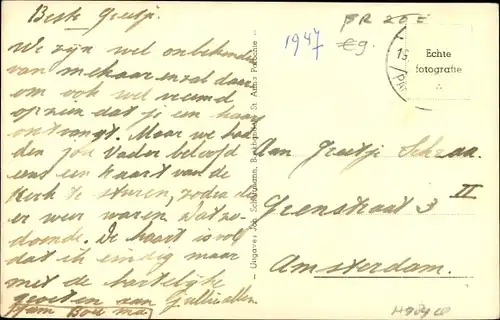 Beste Greetje.
We zijn wel onbekenden
van mekaar en zal daar
om ook wel vreemd
opzien dat je een kaart
ontvangt. Maar we had
den jou Vader beloofd
eens een kaart van de
Kerk te sturen, zodra die
er weer waren Dat vol
doende. De kaart is vol
dat ik eindig maar
met de hartelijke
groeten aan Jullie allen
fam
1947
€9.
Echte
fotografie
Uitgave: Joh. Boekhandel, St. Anna Parochie
Aan Greetje
Greenstraat 3 II
Amsterdam.